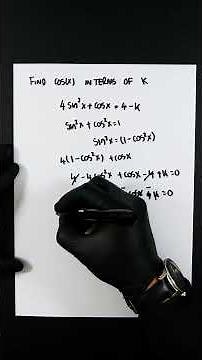 FIND COS(X) IN TERMS OF K
4 sin²x + cosx = 4 - k
sin²x + cos²x = 1
sin²x = (1 - cos²x)
4(1 - cos²x) + cosx
4 - 4cos²x + cosx - 4 + k = 0
cosx + k = 0